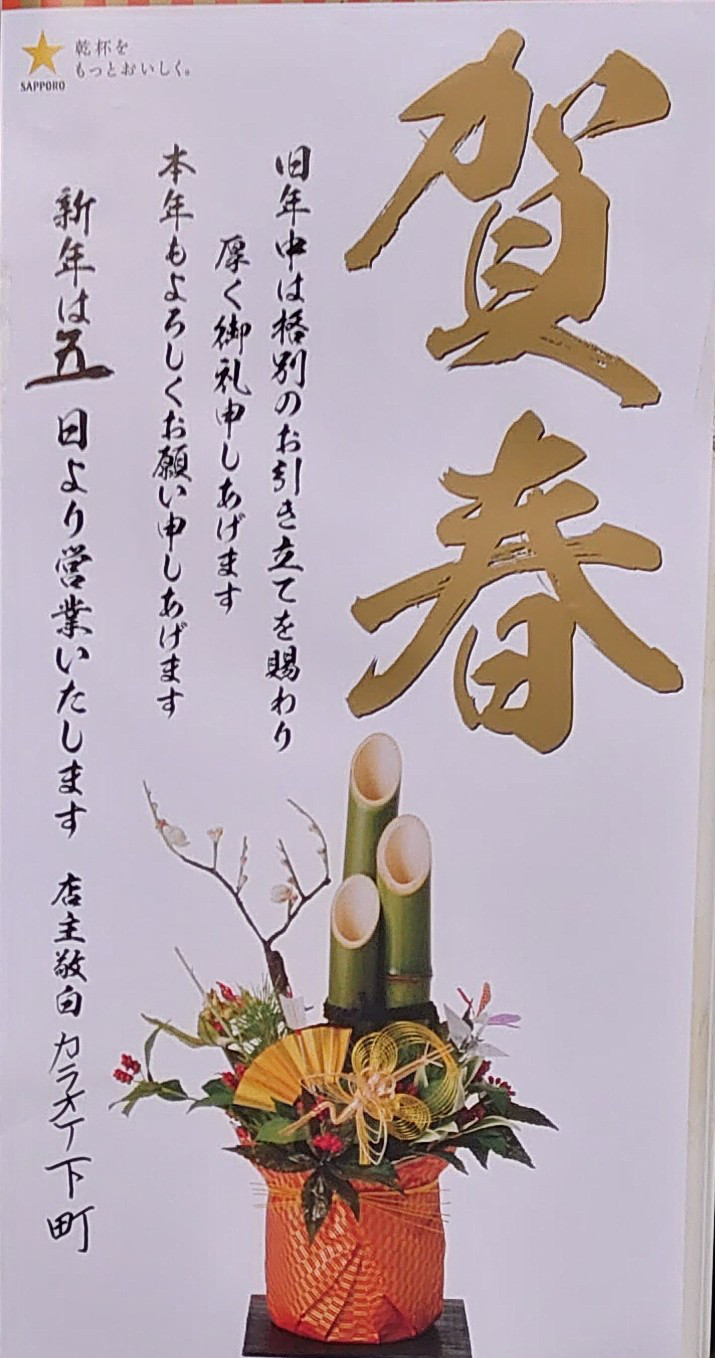 乾杯を
もっとおいしく。
SAPPORO
賀春
旧年中は格別のお引き立てを賜わり
厚く御礼申しあげます
本年もよろしくお願い申しあげます
新年は五日より営業いたします 店主敬白 カラオケ下町